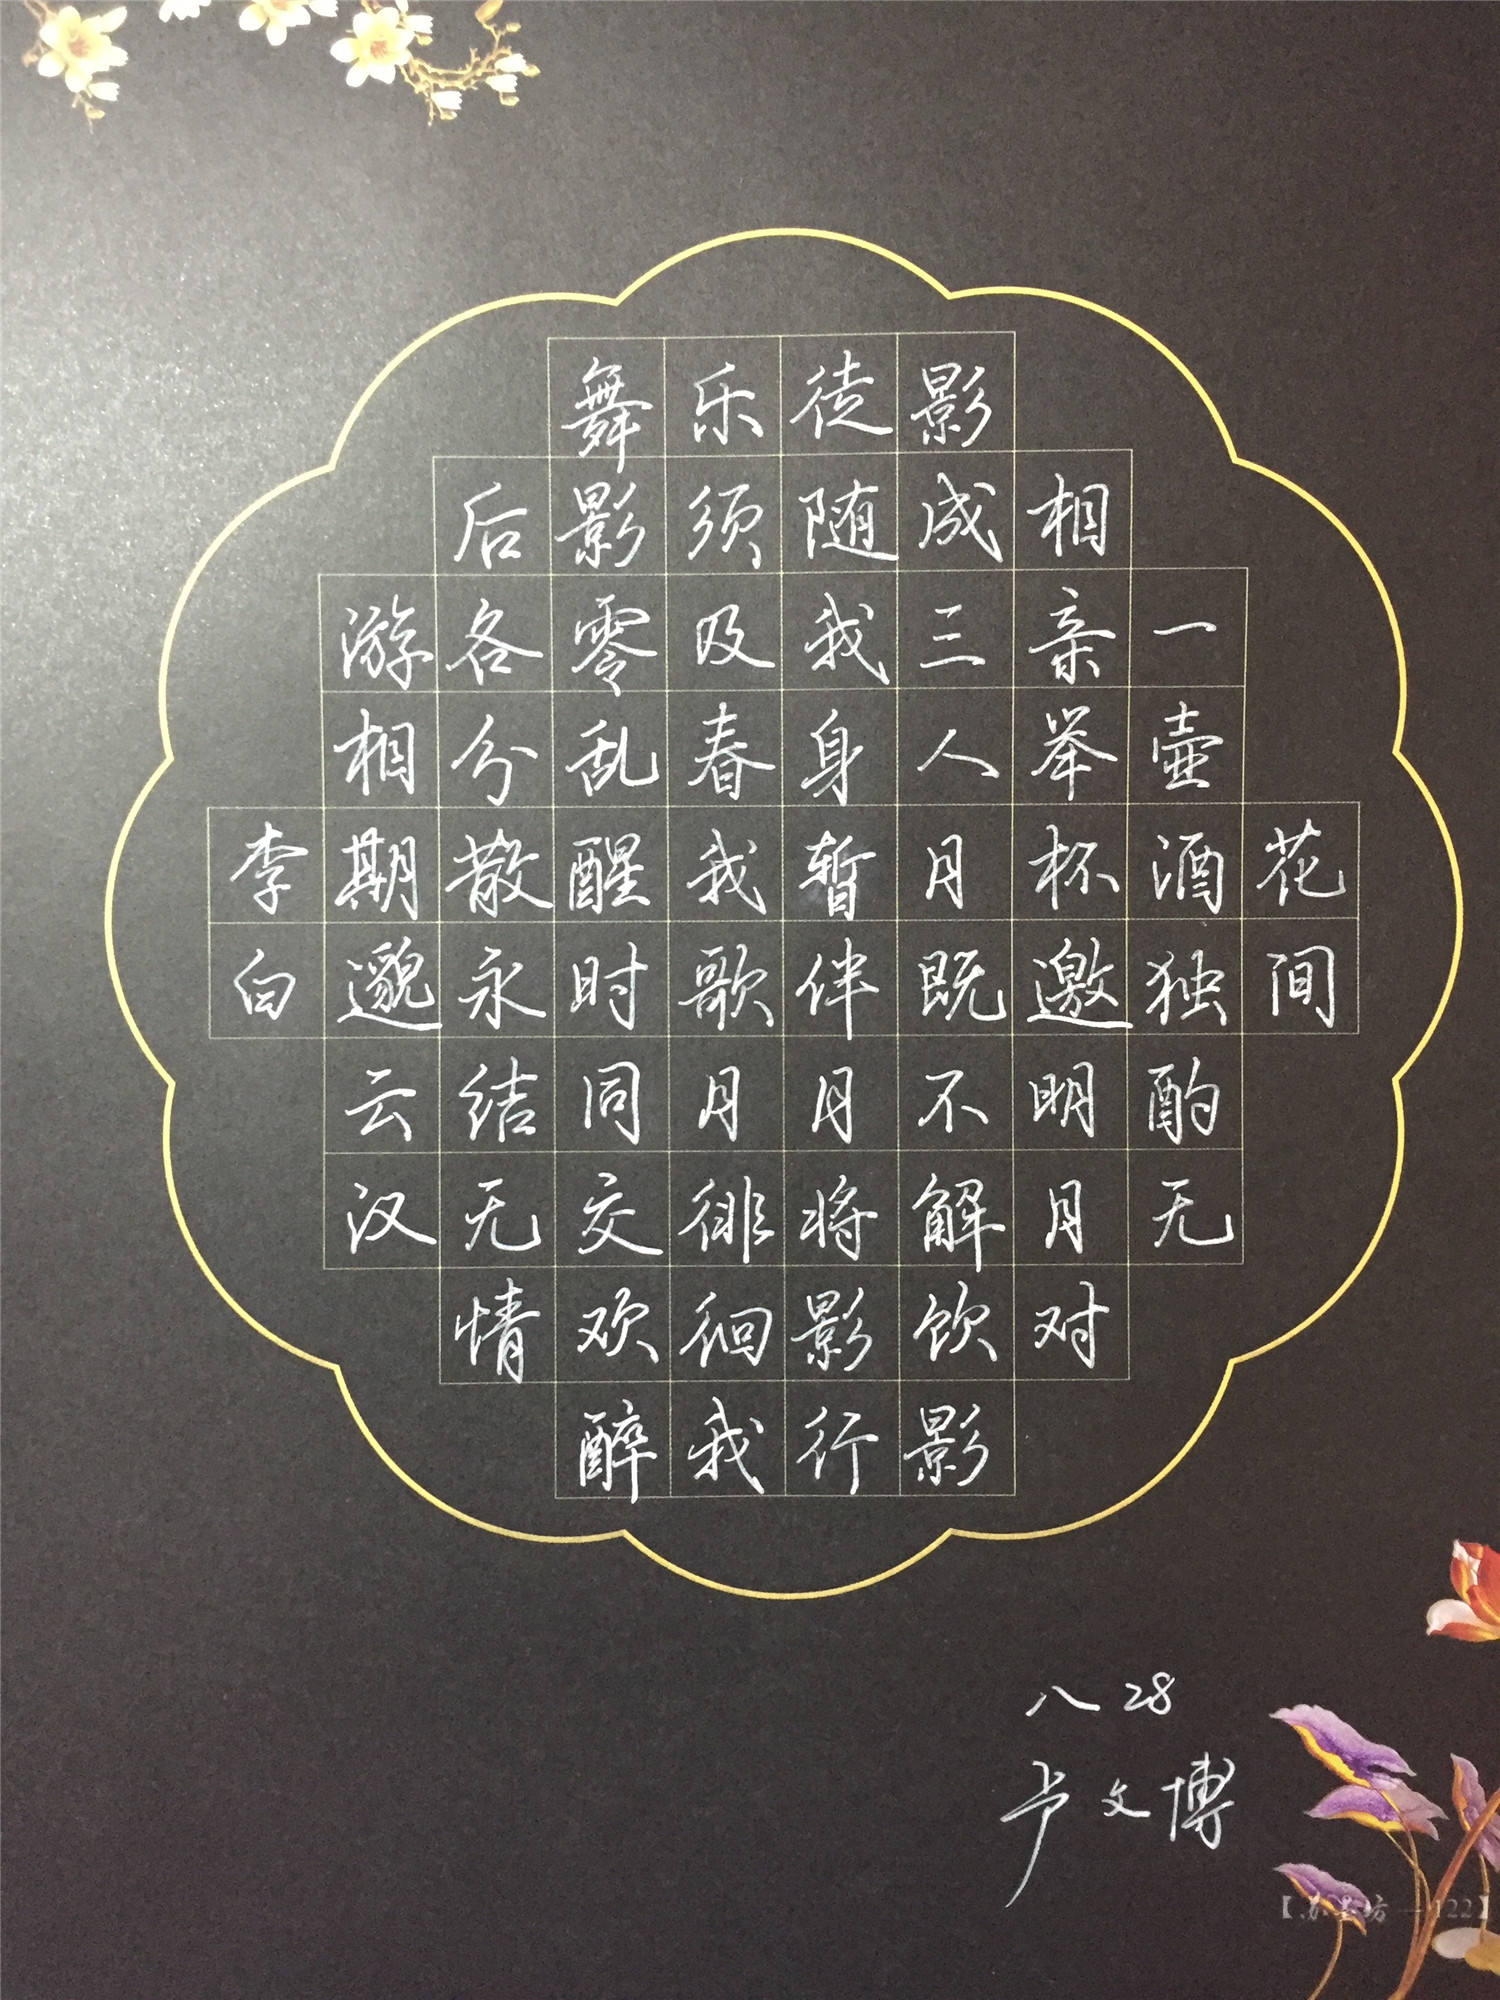 花间
一壶酒独酌无
相亲举杯邀明月对
影成三人月既不解饮影
徒随我身暂伴月将影行
乐须及春我歌月徘徊我
舞影零乱醒时同交欢醉
后各分散永结无情
游相期邈云汉
李白
八28
卢文博
【苏墨坊—122】